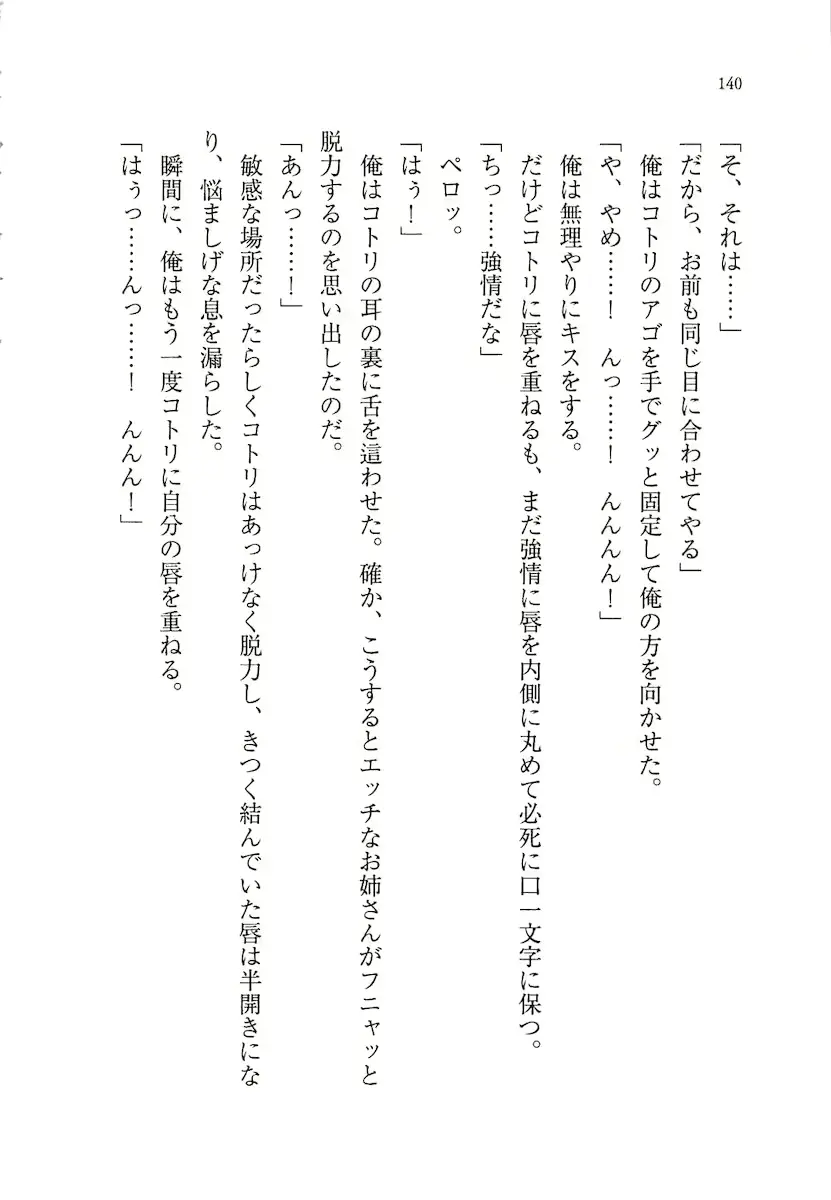 140
「そ、それは……」
「だから、お前も同じ目に合わせてやる」
俺はコトリのアゴを手でグッと固定して俺の方を向かせた。
「や、やめ……！　んっ……！　んんんん！」
俺は無理やりにキスをする。
だけどコトリに唇を重ねるも、まだ強情に唇を内側に丸めて必死に口一文字に保つ。
「ちっ……強情だな」
ペロッ。
「はぅ！」
俺はコトリの耳の裏に舌を這わせた。確か、こうするとエッチなお姉さんがフニャッと
脱力するのを思い出したのだ。
「あんっ……！」
敏感な場所だったらしくコトリはあっけなく脱力し、きつく結んでいた唇は半開きにな
り、悩ましげな息を漏らした。
瞬間に、俺はもう一度コトリに自分の唇を重ねる。
「はぅっ……んっ……！　んんん！」